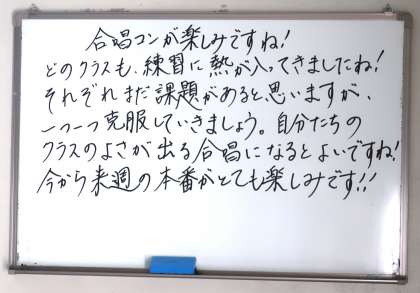 合唱コンが楽しみですね!
どのクラスも、練習に熱が入ってきましたね!
それぞれまだ課題があると思いますが、
一つ一つ克服していきましょう。自分たちの
クラスのよさが出る合唱になるとよいですね!
今から来週の本番がとても楽しみです!!